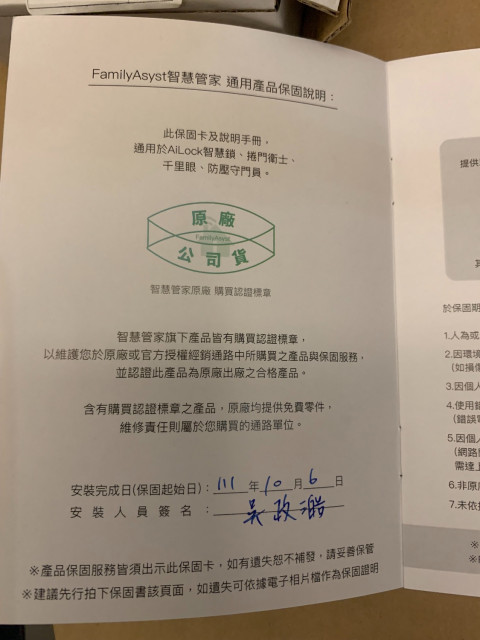 FamilyAsyst智慧管家 通用產品保固說明：
此保固卡及說明手冊，
適用於AiLock智慧鎖、捲門衛士、
千里眼、防壓守門員。
原廠
FamilyAsyst
公司貨
智慧管家原廠 購買認證標章
智慧管家旗下產品皆有購買認證標章，
以維護您於原廠或官方授權經銷通路中所購買之產品與保固服務，
並認證此產品為原廠出廠之合格產品。
含有購買認證標章之產品，原廠均提供免費零件，
維修責任則屬於您購買的通路單位。
安裝完成日(保固起始日)：111年10月6日
安裝人員簽名：吳政澔
※產品保固服務皆須出示此保固卡，如有遺失恕不補發，請妥善保管
※建議先行拍下保固書該頁面，如遺失可依據電子相片檔作為保固證明
提供
於保固期
1.人為或
2.因環境
(如損傷
3.因個人
4.使用錯
(錯誤電
5.因個人
(網路
需達上
6.非原廠
7.未依